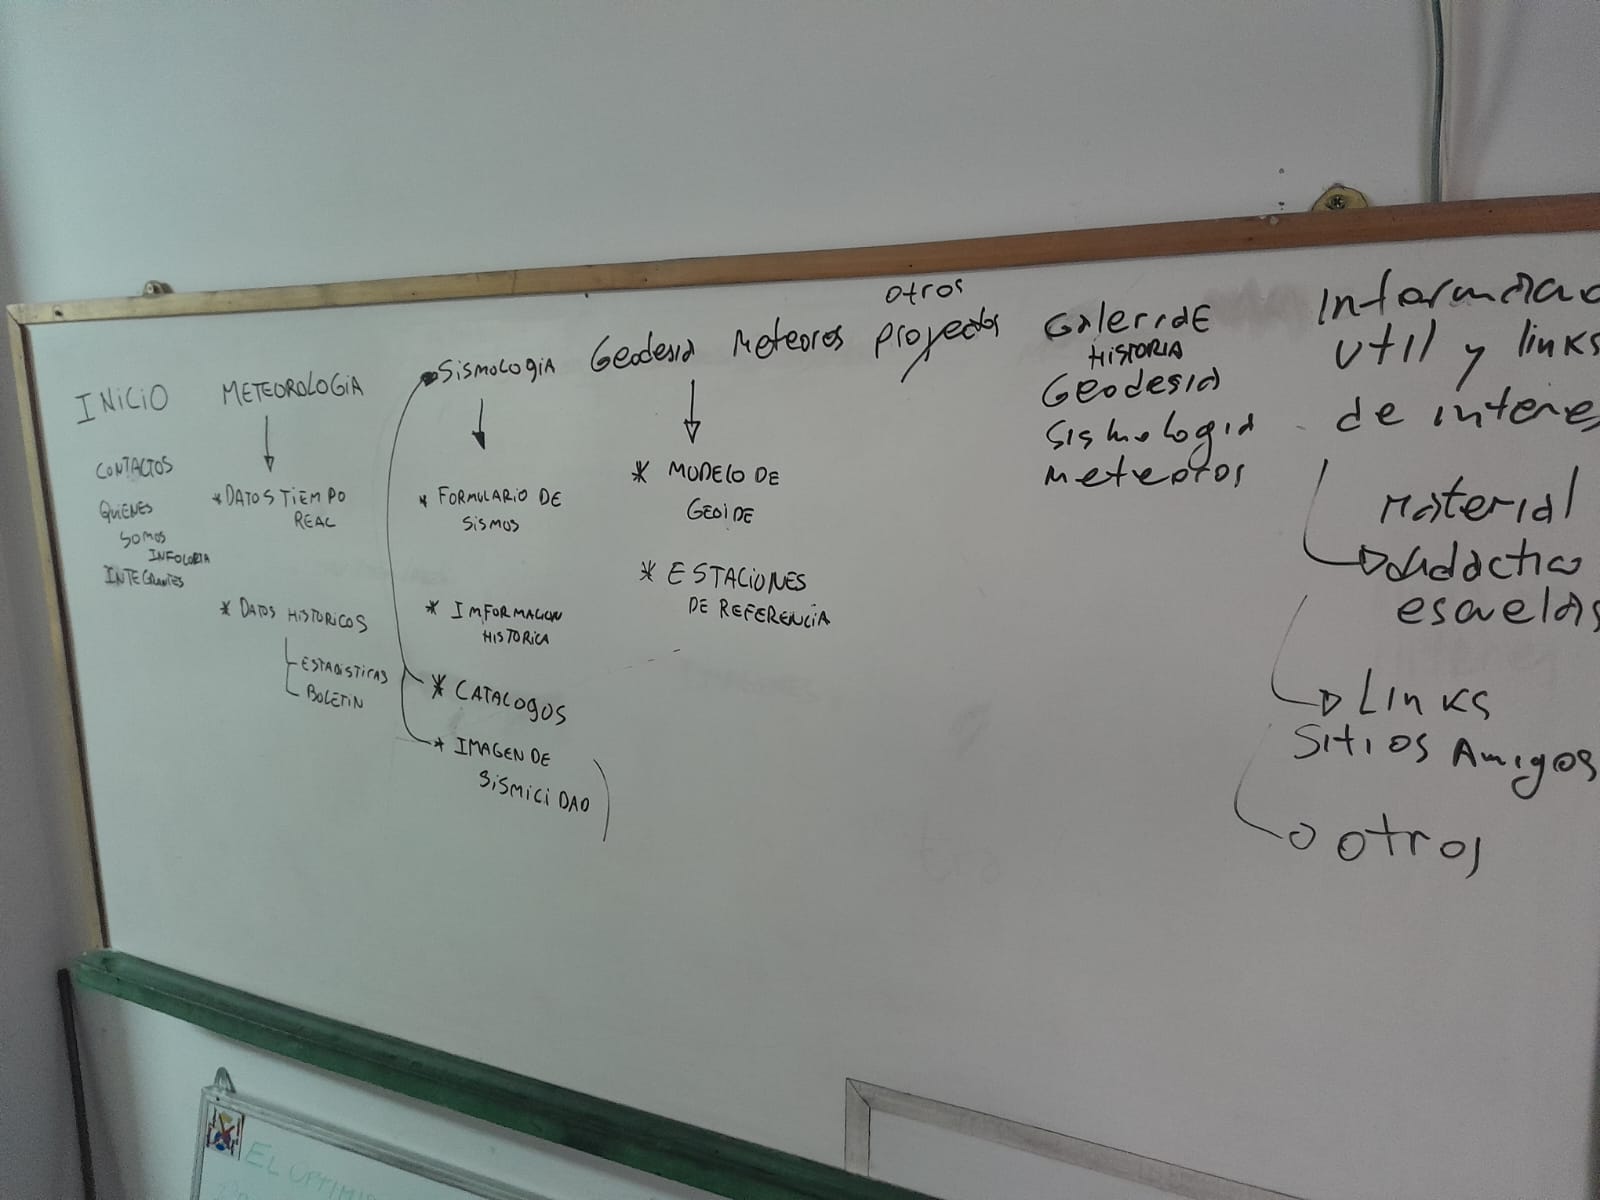 INICIO
CONTACTOS
QUIENES
SOMOS
INTEGRANTES
METEOROLOGIA
* DATOS TIEMPO
REAL
* DATOS HISTORICOS
ESTADISTICAS
BOLETIN
SISMOLOGIA
* FORMULARIO DE
SISMOS
* IMFORMACION
HISTORICA
* CATALOGOS
* IMAGEN DE
SISMICIDAD
Geodesia
* MODELO DE
GEOIDE
* ESTACIONES
DE REFERENCIA
Meteoros
otros
proyectos
HISTORIA
Geodesia
Sismologia
Meteoros
util y links
de interes
Material
didactico
escuelas
Links
Sitios Amigos
otros
EL